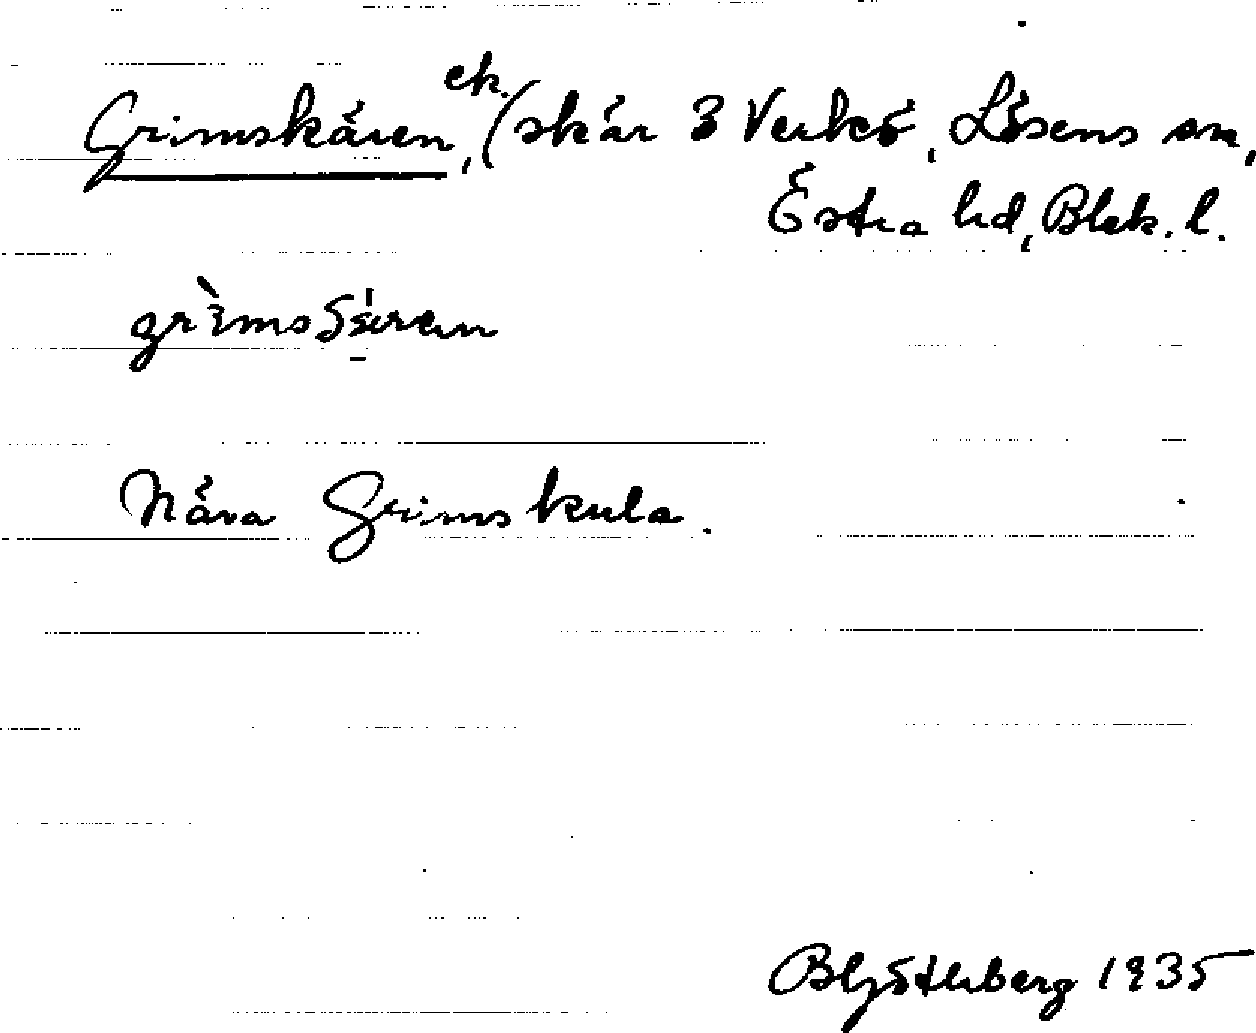 Grimskären, ek. (skär 3 Verkö, Lösens sn,
Östra hd, Blek. l.
Nära Grimskula.
1935